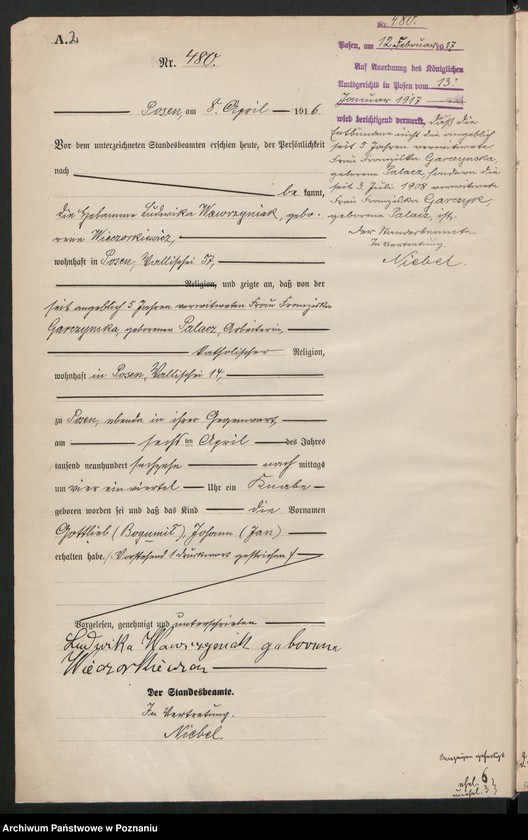 A.2
Nr. 480.
Posen, am 8. April 1916.
Vor dem unterzeichneten Standesbeamten erschien heute, der Persönlichkeit
nach
be kannt,
die Hebamme Ludwika Wawrzyniak, gebo-
rene Wieczorkiewicz,
wohnhaft in Posen, Wallischei 57,
Religion, und zeigte an, daß von der
seit angeblich 5 Jahren verwitweten Frau Franziska
Garczynska, geborenen Palacz, Arbeiterin,
katholischer Religion,
wohnhaft in Posen, Wallischei 14,
zu Posen, ebenda in ihrer Gegenwart,
am sechsten April des Jahres
tausend neunhundert sechzehn nach mittags
um vier ein viertel Uhr ein Knabe
geboren worden sei und daß das Kind die Vornamen
Gottlieb (Bogumil), Johann (Jan)
erhalten habe. (Vorstehend 1 Druckwort gestrichen.)
Vorgelesen, genehmigt und unterschrieben
Ludwika Wawrzyniak geborene
Wieczorkiewicz
Der Standesbeamte.
In Vertretung.
Niebel.
Nr. 480.
Posen, am 12. Februar 1917
Auf Anordnung des Königlichen
Amtsgerichts in Posen vom 13.
Januar 1917
wird berichtigend vermerkt, daß die
Entbundene nicht die angeblich
seit 5 Jahren verwitwete
Frau Franziska Garczynska,
geborene Palacz, sondern die
seit 3. Juli 1908 verwitwete
Frau Franziska Garczyk,
geborene Palacz, ist.
Der Standesbeamte.
In Vertretung.
Niebel.
ehel. 6
unehel. 3
Archiwum Państwowe w Poznaniu